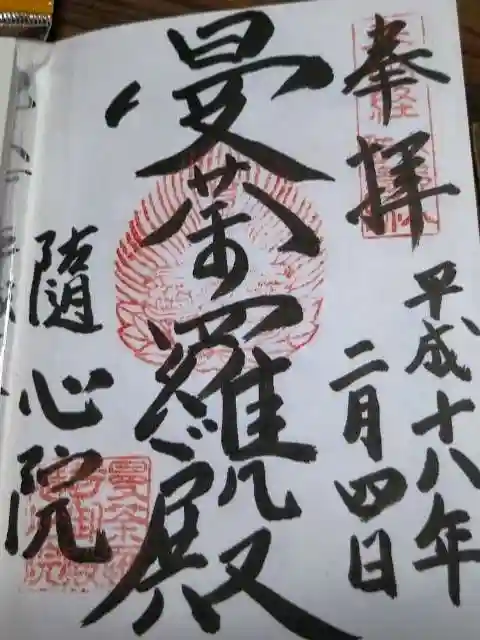 奉拝
平成十八年
二月四日
曼荼羅殿
随心院